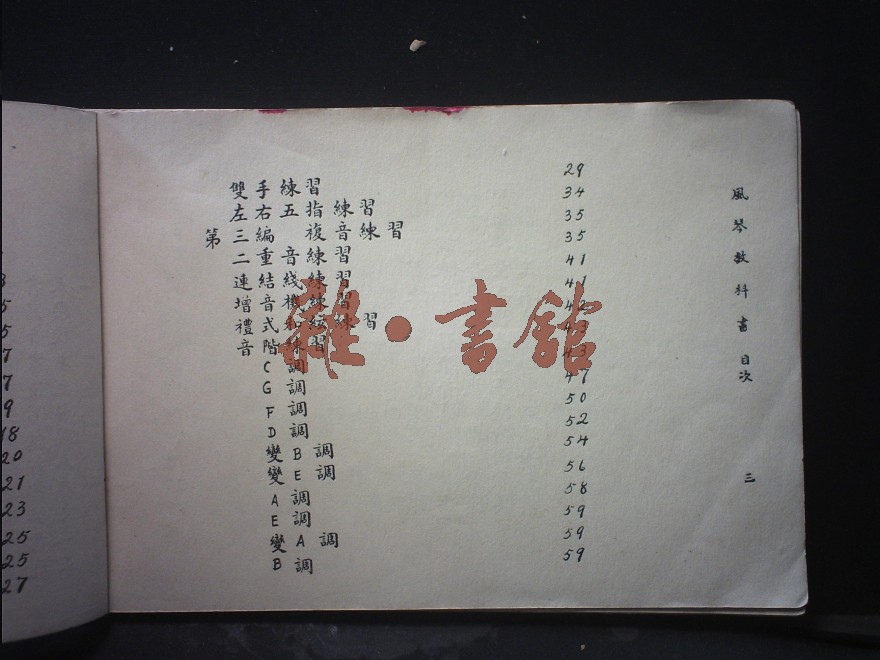 風琴教科書 目次 三
雙手練習 29
左右五指練習 34
第三編 複音練習 35
二重音練習 35
連結綫練習 41
增音機練習 41
禮式和絃練習
音階練習 43
C調 43
G調 47
F調 50
D調 52
變B調 54
變E調 56
A調 58
E調 59
變A調 59
B調 59
雜·書館
18
20
21
23
25
25
27